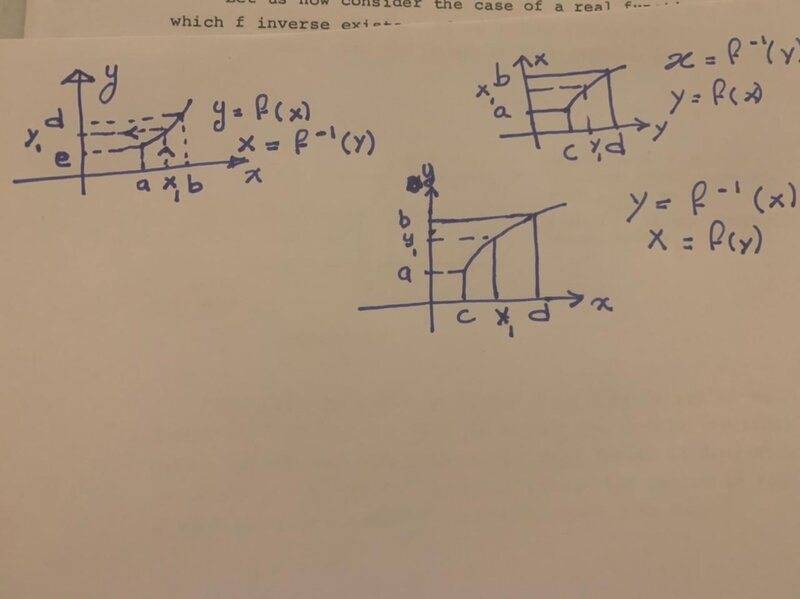 Let us now consider the case of a real
which f inverse exists
y
d
y₁
e
a x₁ b
x
y = f(x)
x = f⁻¹(y)
x
b
x₁
a
c y₁ d
y
x = f⁻¹(y)
y = f(x)
y
b
y₁
a
c x₁ d
x
y = f⁻¹(x)
x = f(y)